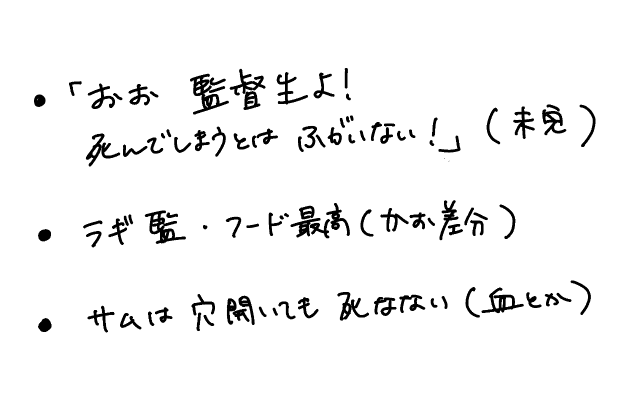 ・「おお 監督生よ!
死んでしまうとは ふがいない!」(未完)
・ラギ監・フード最高(かお差分)
・サムは 穴開いても 死なない(血とか)